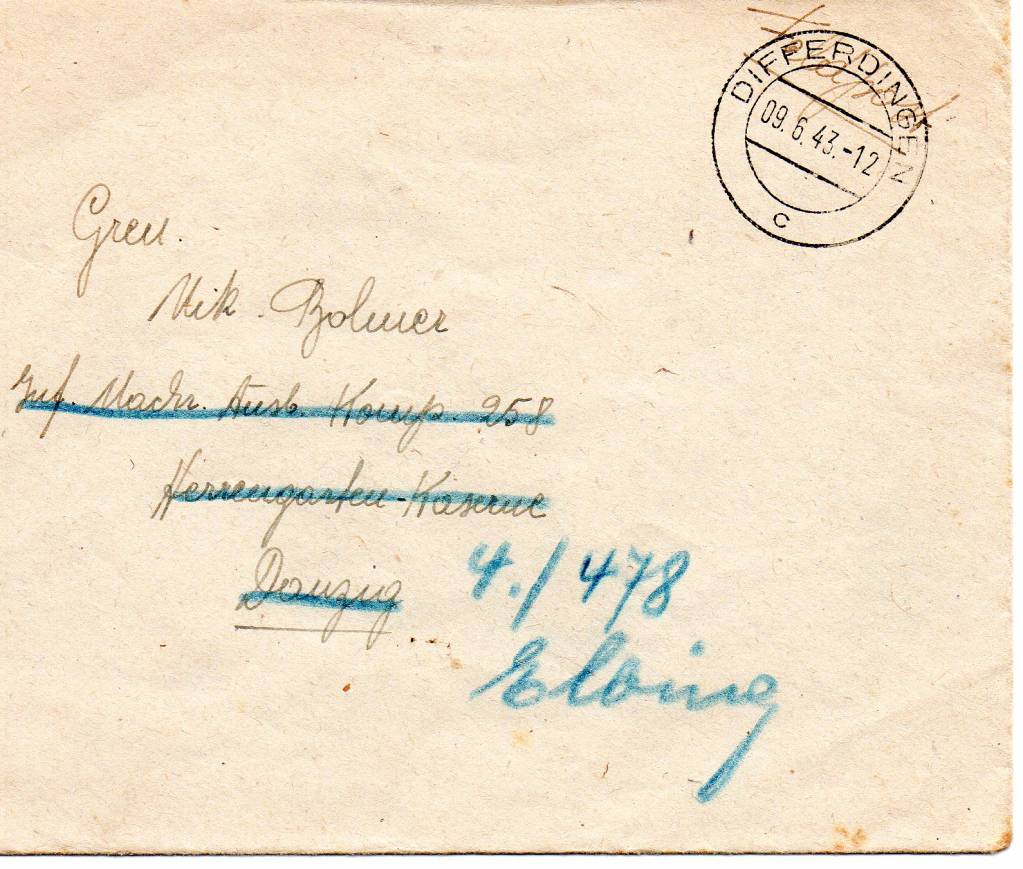 DIFFERDINGEN
09.6.43.-12
c
Gren.
Nik. Bolmer
Inf. Nachr. Ausb. Komp. 258
Herrengarten-Kaserne
Danzig
4./478
Elbing